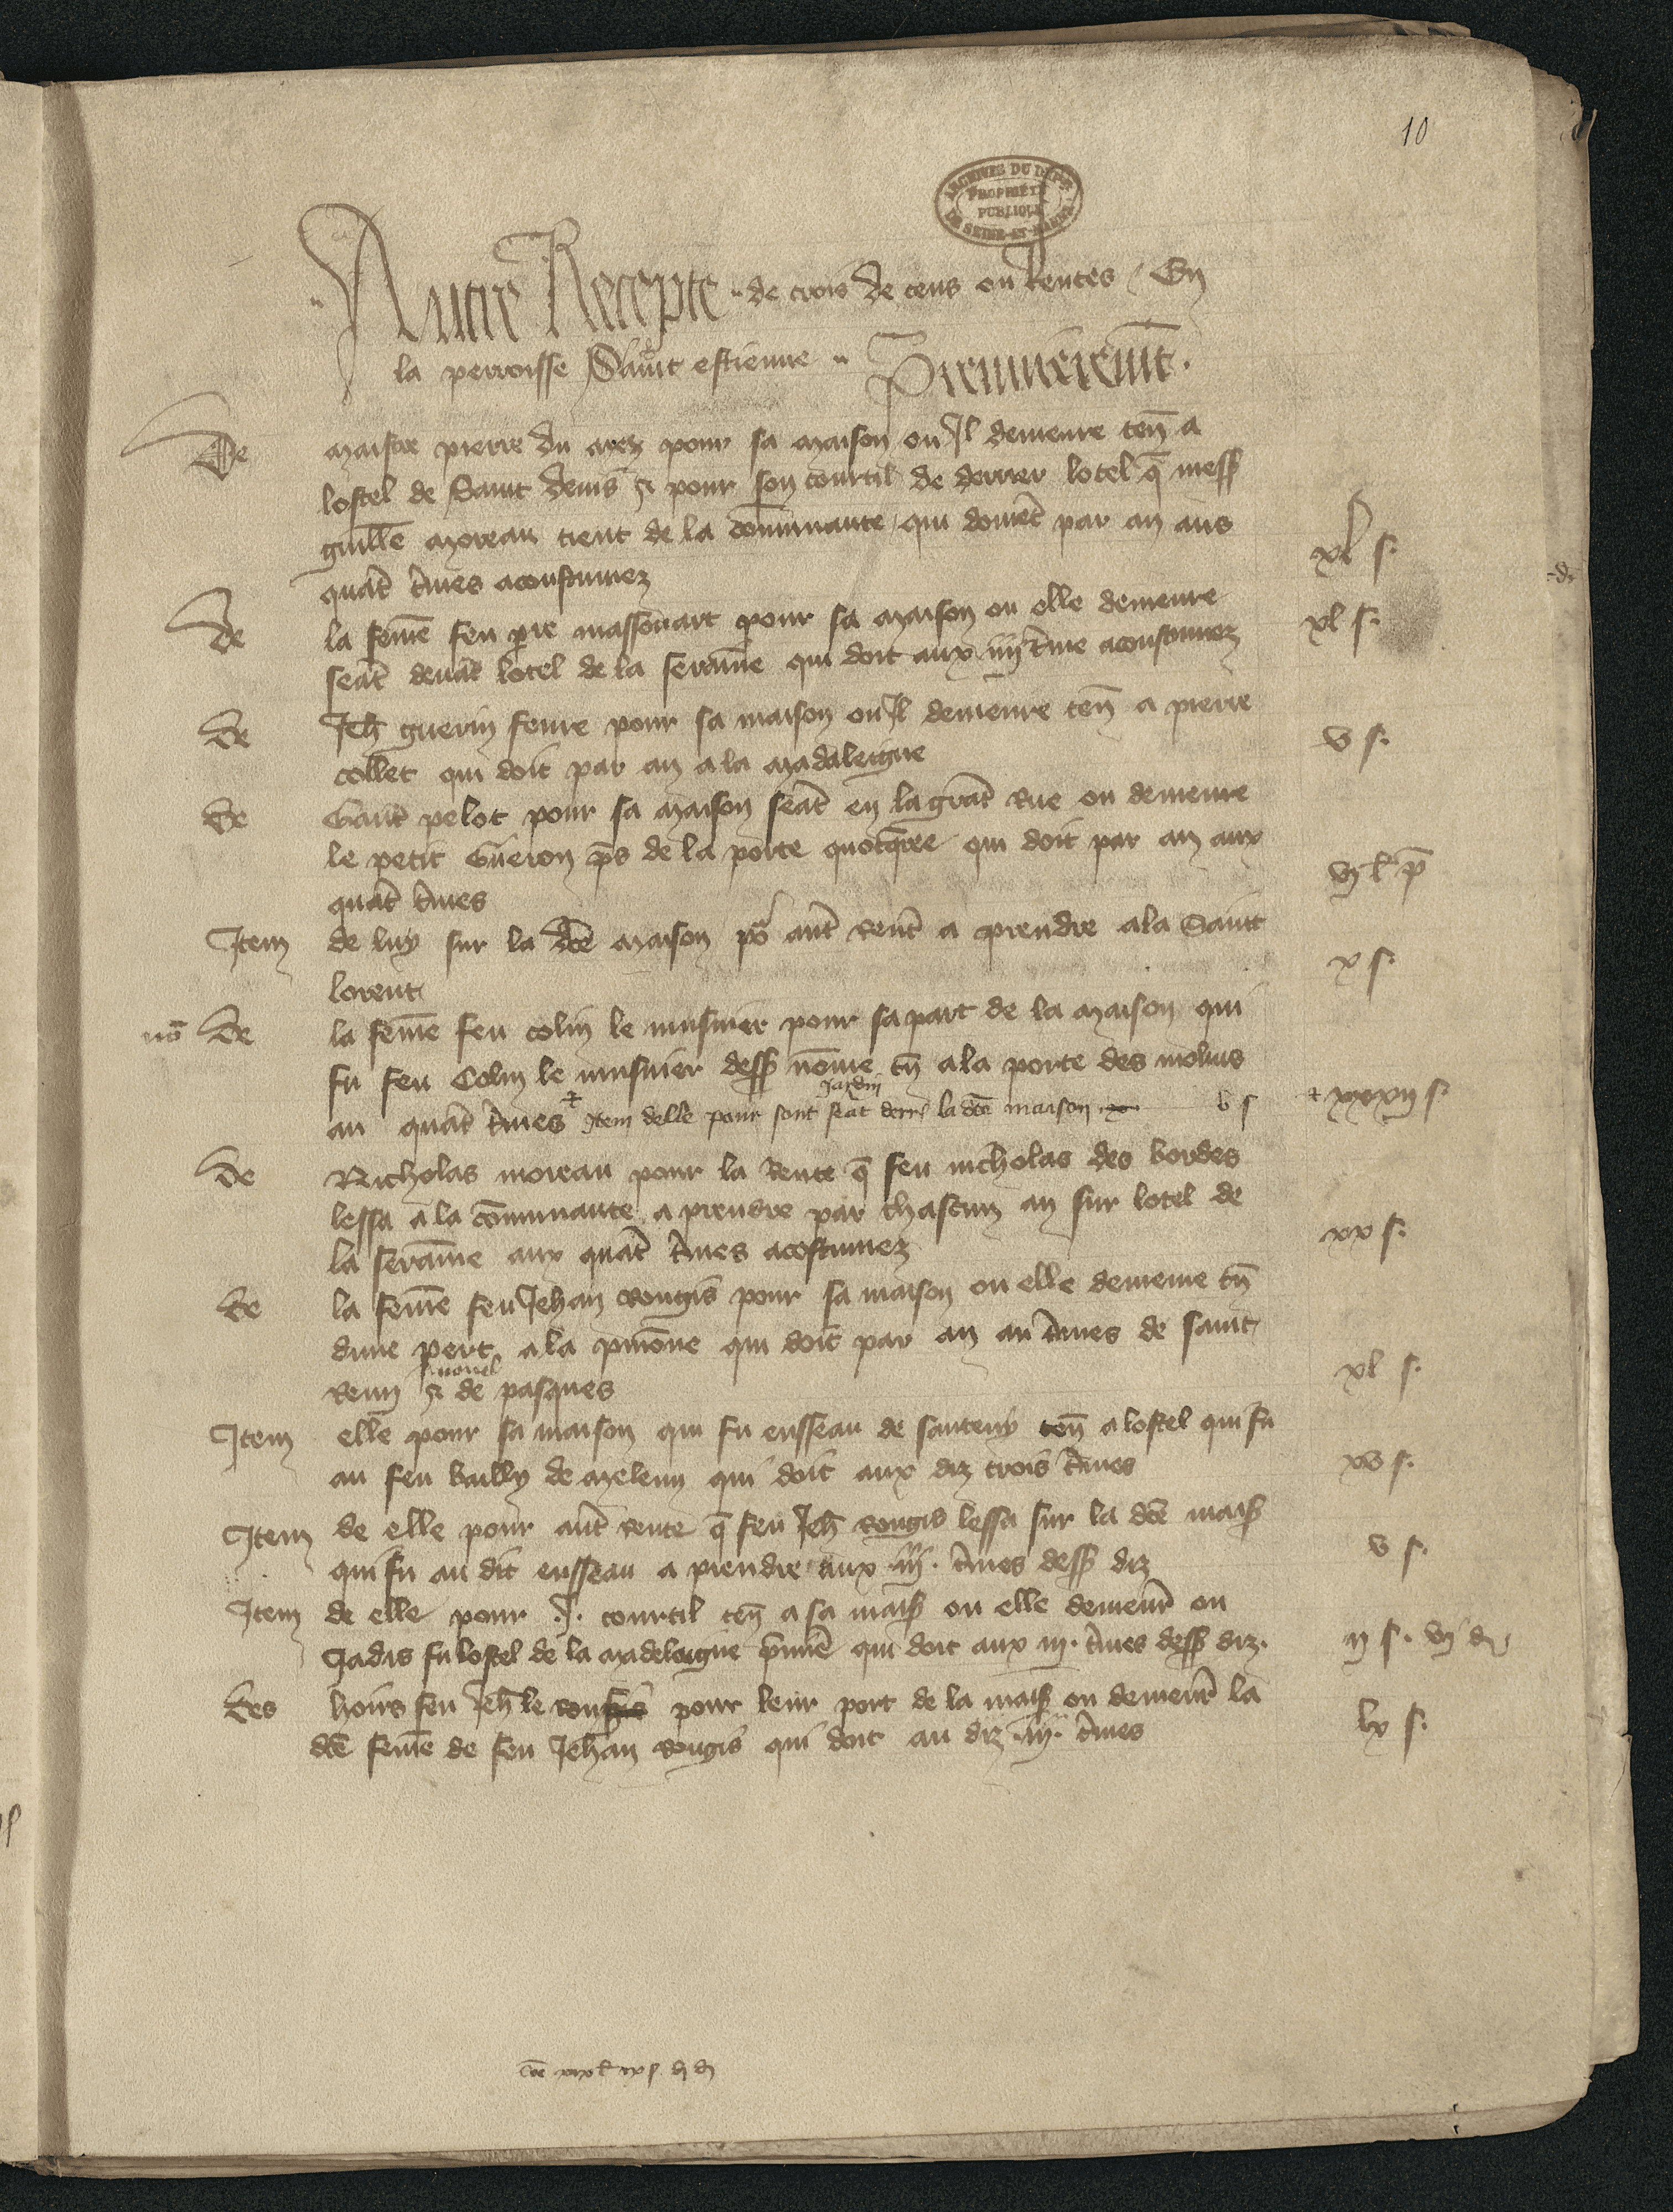 10
ARCHIVES DU DEPT
PROPRIÉTÉ
PUBLIQUE
DE SEINE-ET-MARNE
Autre Recepte de crois de cens ou Rentes / En
la perroisse Saint estienne Premieremt.
De maistre pierre du mez pour sa maison ou Il demeure ten a
lostel de Saint denis & pour son courtil de derrer lotel q mess
guille moreau tient de la comunaute qui doivet par an aus
quat tmes acoustumez xl s.
de la feme feu pre massouart pour sa maison ou elle demeure
seat devat lotel de la serame qui doit aux iiij tme acoustumez xl s.
de Jeh guerin fevre pour sa maison ou Il demeure ten a pierre
collet qui doit par an a la madaleigne v s.
de Gaut pelot pour sa maison seat en la grat Rue ou demeure
le petit Gueron ps de la porte qui doit par an aux
quat tmes vj l p
Item de luy sur la dce maison po aut Rent a prendre a la Saint
lorent x s.
no de la feme feu colin le musnier pour sa part de la maison qui
fu feu Colin le musnier dess nome tn a la porte des molins
au quat tmes + Item delle pour sont Jardin seat derr la dce maison v s + xxxij s.
de Nicholas moreau pour la Rente q feu nicholas des bordes
lessa a la comunaute a prendre par chascun an sur lotel de
la serame aux quat tmes acostumez xx s.
de la feme feu Jehan Rougis pour sa maison ou elle demeure tn
dune pert a la qui doit par an au tmes de saint
Remi nouel & de pasques xl s.
Item elle pour sa maison qui fu ensseau de santeny ten a lostel qui fu
au feu bailly de meleun qui doit aux diz trois tmes xv s.
Item de elle pour aut rente q feu Jeh Rougis lessa sur la dce mais
qui fu au dit ensseau a prendre aux .iij. tmes dess diz v s.
Item de elle pour .J. courtil ten a sa mais ou elle demeur ou
Jadis fu lostel de la madeleigne qui doit aux iij. tmes dess diz. ij s. vj d
des hoirs feu Jeh le pour leur port de la mais ou demeur la
dce feme de feu Jehan Rougis qui doit au diz .iij. tmes lx s.